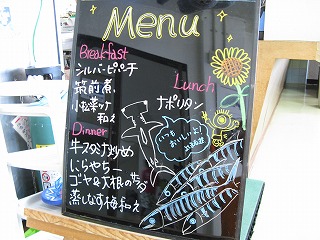 Menu
Breakfast
シルバーピーチ
筑前煮
小松菜ツナ
和え
Lunch
ナポリタン
Dinner
牛スタミナ炒め
にらやちー
ゴーヤ&大根のサラダ
蒸しなす梅和え
いつも
おいしいよ♪